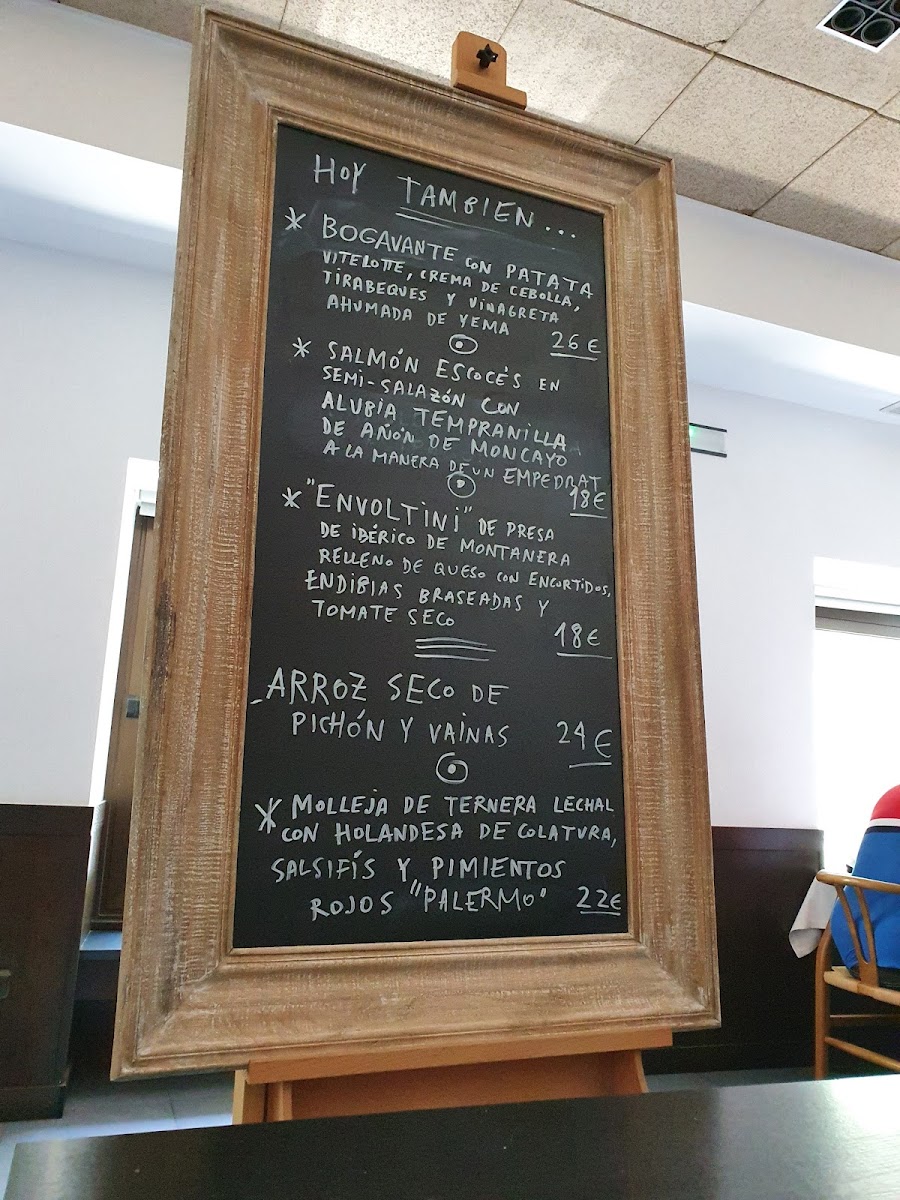 HOY TAMBIEN...
* BOGAVANTE CON PATATA
VITELOTTE, CREMA DE CEBOLLA,
TIRABEQUES Y VINAGRETA
AHUMADA DE YEMA 26 €
* SALMÓN ESCOCÉS EN
SEMI-SALAZÓN CON
ALUBIA TEMPRANILLA
DE AÑÓN DE MONCAYO
A LA MANERA DE UN EMPEDRAT
18 €
* "ENVOLTINI" DE PRESA
DE IBÉRICO DE MONTANERA
RELLENO DE QUESO CON ENCURTIDOS,
ENDIBIAS BRASEADAS Y
TOMATE SECO 18 €
-ARROZ SECO DE
PICHÓN Y VAINAS 24 €
* MOLLEJA DE TERNERA LECHAL
CON HOLANDESA DE COLATURA,
SALSIFÍS Y PIMIENTOS
ROJOS "PALERMO" 22 €